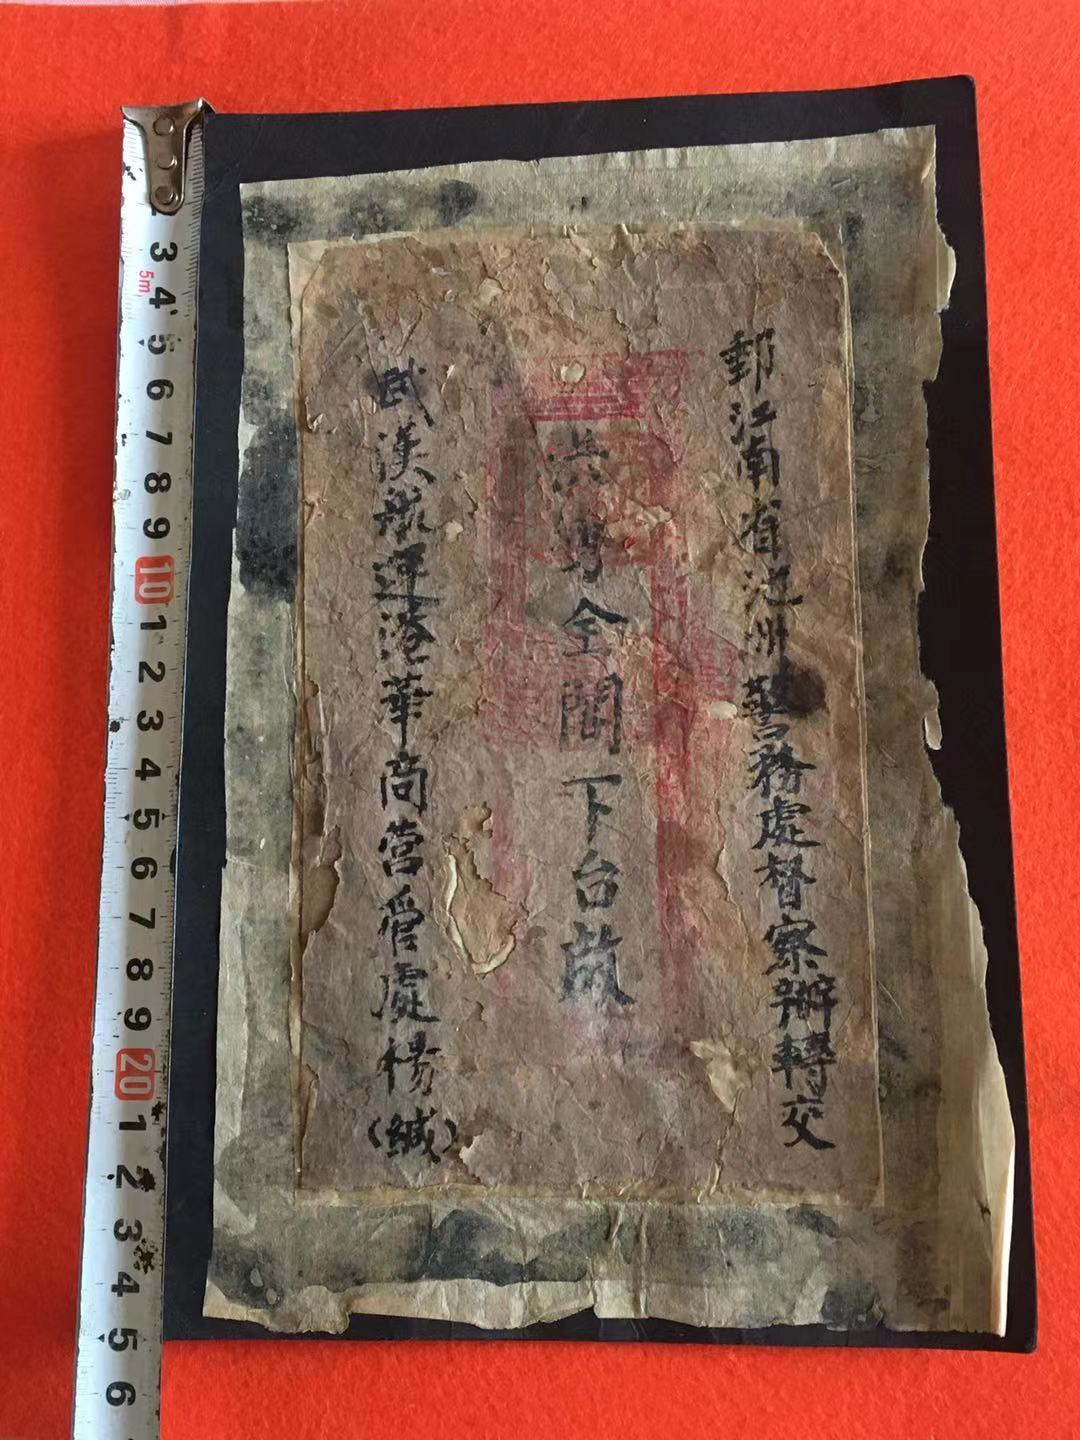 郵江南省江州警務處督察辦轉交
洪勇全閣下台啟
武漢航運港華商營管處楊
(緘)
5m
3
4
5
6
7
8
9
10
1
2
3
4
5
6
7
8
9
20
1
2
3
4
5
6